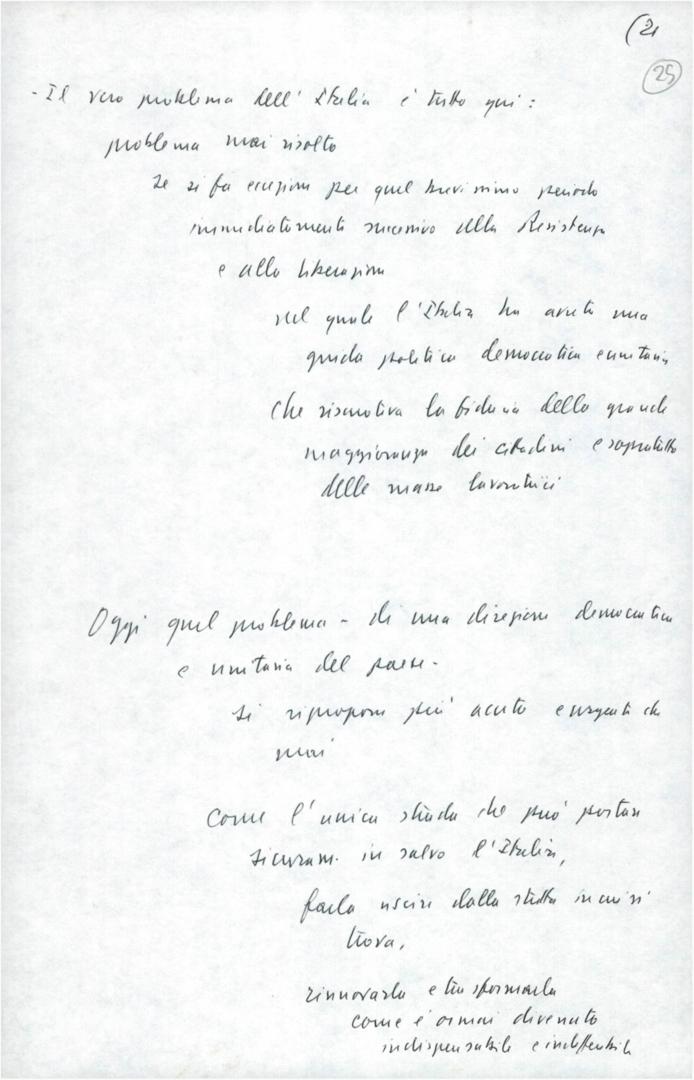 (21
25
- Il vero problema dell'Italia è tutto qui:
problema mai risolto
se si fa eccezione per quel brevissimo periodo
immediatamente successivo alla Resistenza
e alla Liberazione
nel quale l'Italia ha avuto una
guida politica democratica e unitaria
che riscuoteva la fiducia della grande
maggioranza dei cittadini e soprattutto
delle masse lavoratrici
Oggi quel problema - di una direzione democratica
e unitaria del paese -
si ripropone più acuto e urgente che
mai
come l'unica strada che può portare
sicuram. in salvo l'Italia,
farla uscire dalla stretta in cui si
trova,
rinnovarla e trasformarla
come è ormai divenuto
indispensabile e indifferibile